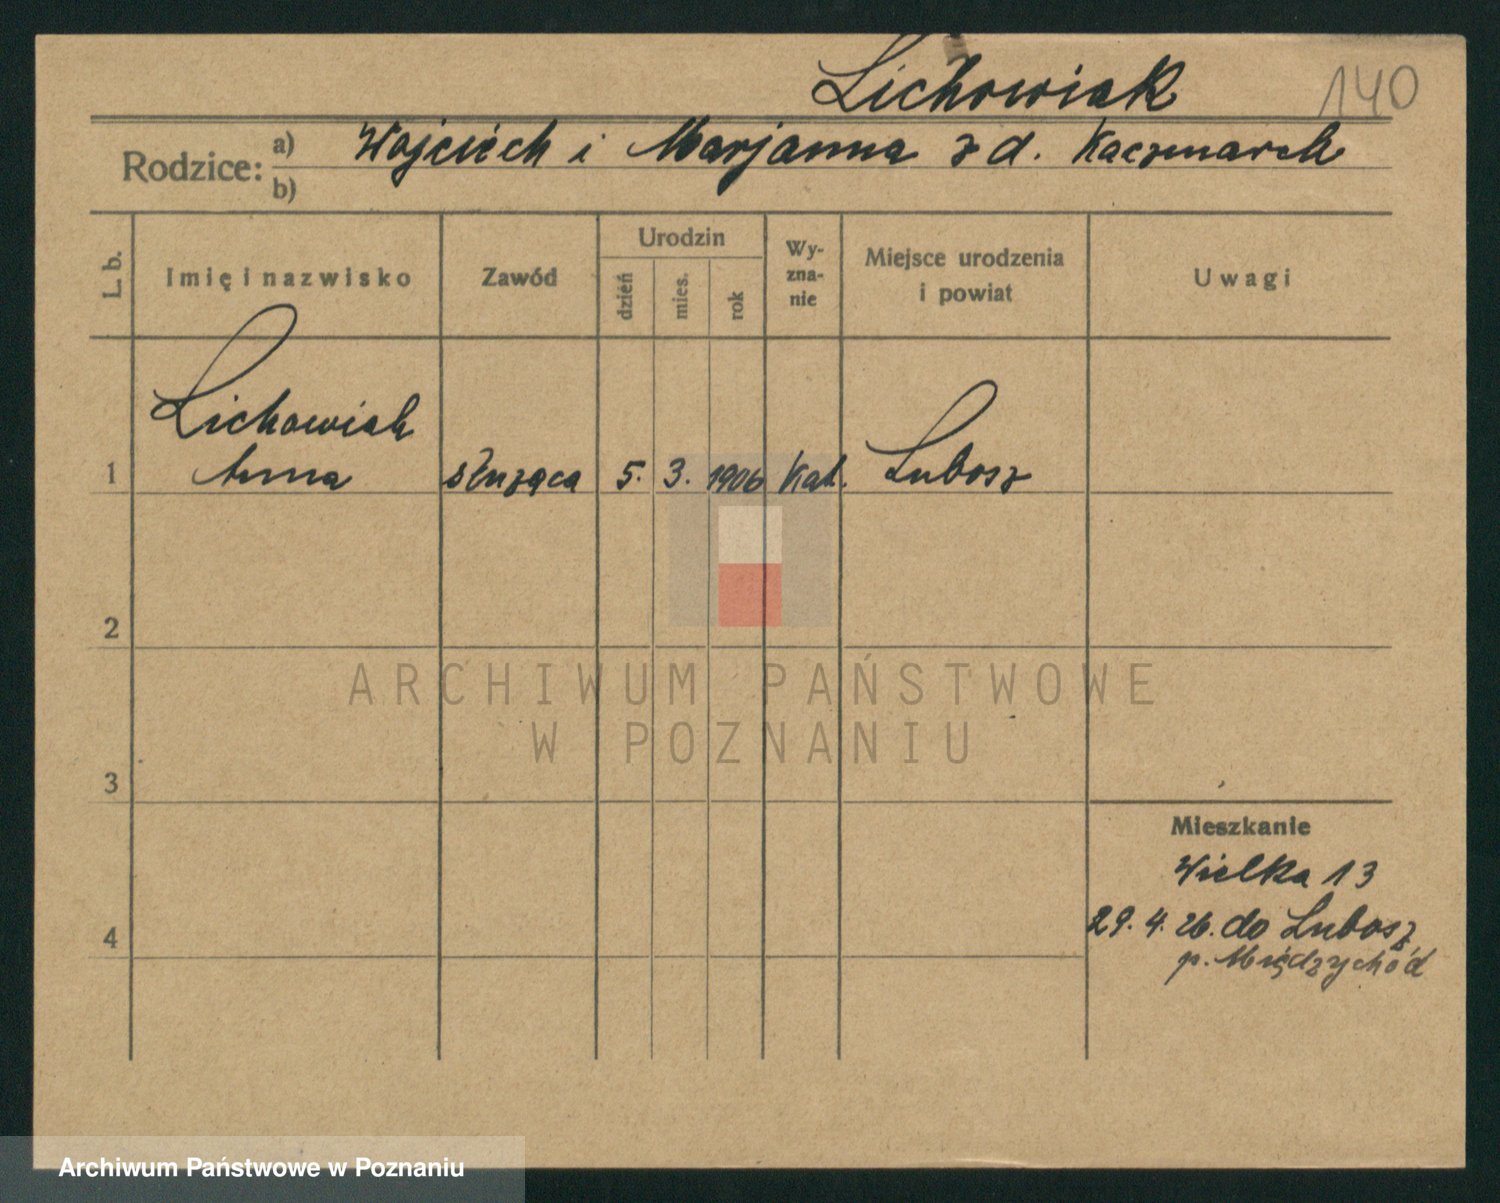 Lichowiak 140
Rodzice: a) Wojciech i Marjanna z d. Kaczmarek
b)
L. b.
Imię i nazwisko
Zawód
Urodzin
dzień
mies.
rok
Wy-
zna-
nie
Miejsce urodzenia
i powiat
Uwagi
Lichowiak
1 Anna służąca 5. 3. 1906 Kat. Lubosz
2
ARCHIWUM PAŃSTWOWE
W POZNANIU
3
Mieszkanie
Wielka 13
4 29. 4. 26. do Lubosz
p. Międzychód
Archiwum Państwowe w Poznaniu